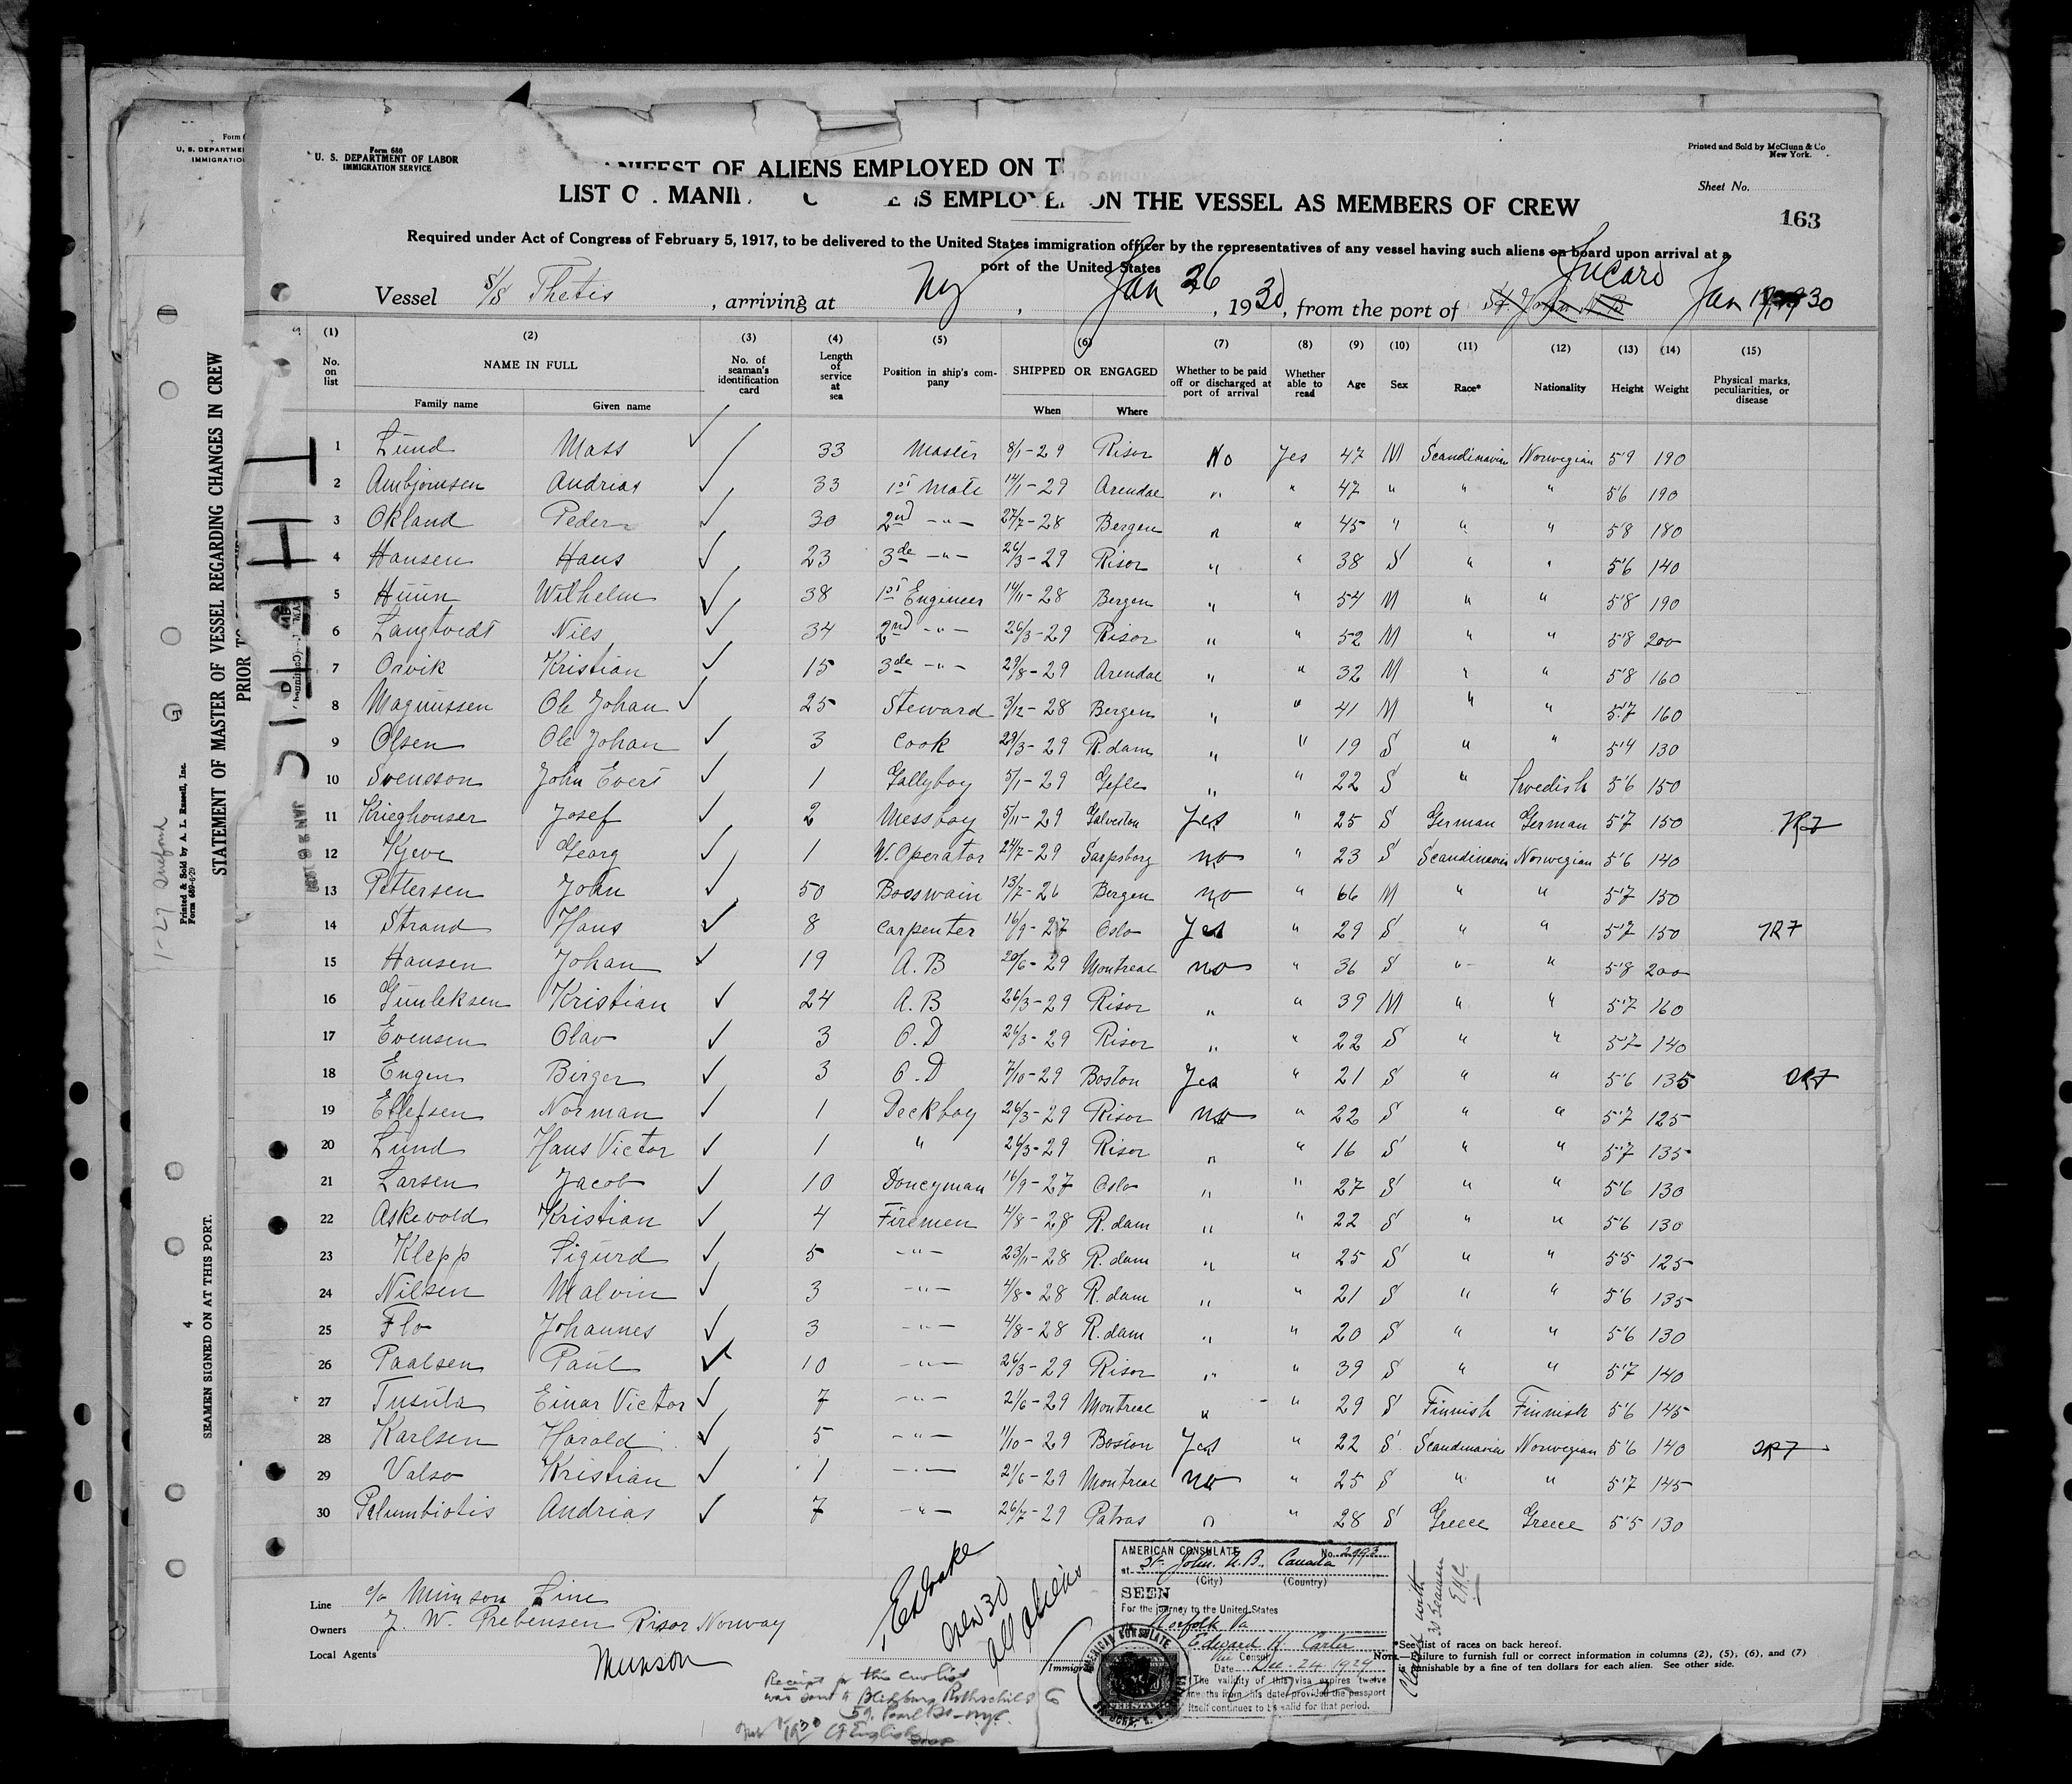 Form 680
U. S. DEPARTMENT OF LABOR
IMMIGRATION SERVICE
Printed and Sold by McClunn & Co
New York.
Sheet No.
163
OF ALIENS EMPLOYED ON
LIST EMPLOYED ON THE VESSEL AS MEMBERS OF CREW
Required under Act of Congress of February 5, 1917, to be delivered to the United States immigration officer by the representatives of any vessel having such aliens on board upon arrival at a
port of the United States
Vessel S/S Thetis, arriving at NY, Jan 26, 1930, from the port of St. John N B Jucaro Jan 30
(1) (2) (3) (4) (5) (6) (7) (8) (9) (10) (11) (12) (13) (14) (15)
No. on list NAME IN FULL Family name Given name No. of seaman's identification card Length of service at sea Position in ship's company SHIPPED OR ENGAGED When Where Whether to be paid off or discharged at port of arrival Whether able to read Age Sex Race* Nationality Height Weight Physical marks, peculiarities, or disease
1 Lund Mass ✓ 33 Master 8/1-29 Risor No Yes 47 M Scandinavian Norwegian 5'9 190
2 Ambjornsen Andrias ✓ 33 1st Mate 14/1-29 Arendal " " 47 " " " 5'6 190
3 Okland Peder ✓ 30 2nd -"- 27/7-28 Bergen " " 45 " " " 5'8 180
4 Hansen Hans ✓ 23 3de -"- 26/3-29 Risor " " 38 S " " 5'6 140
5 Huun Wilhelm ✓ 38 1st Engineer 14/11-28 Bergen " " 54 M " " 5'8 190
6 Langtvedt Nils ✓ 34 2nd -"- 26/3-29 Risor " " 52 M " " 5'8 200
7 Orvik Kristian ✓ 15 3de -"- 29/8-29 Arendal " " 32 M " " 5'8 160
8 Magnussen Ole Johan ✓ 25 Steward 3/12-28 Bergen " " 41 M " " 5'7 160
9 Olsen Ole Johan ✓ 3 Cook 29/3-29 R.dam " " 19 S " " 5'4 130
10 Svensson John Evert ✓ 1 Gallyboy 5/1-29 Gefle " " 22 S " Swedish 5'6 150
11 Krieghouser Josef ✓ 2 Messboy 5/11-29 Galveston Yes " 25 S German German 5'7 150
12 Kjeve Georg ✓ 1 W.Operator 24/7-29 Sarpsborg no " 23 S Scandinavian Norwegian 5'6 140
13 Pettersen John ✓ 50 Bosswain 13/7-26 Bergen no " 66 M " " 5'7 150
14 Strand Hans ✓ 8 Carpenter 16/9-27 Oslo Yes " 29 S " " 5'7 150
15 Hansen Johan ✓ 19 A.B 20/6-29 Montreal no " 36 S " " 5'8 200
16 Gunleksen Kristian ✓ 24 A.B 26/3-29 Risor " " 39 M " " 5'7 160
17 Evensen Olav ✓ 3 O.D 26/3-29 Risor " " 22 S " " 5'7 140
18 Engen Birger ✓ 3 O.D 7/10-29 Boston Yes " 21 S " " 5'6 135
19 Ellefsen Norman ✓ 1 Deckboy 26/3-29 Risor no " 22 S " " 5'7 125
20 Lund Hans Victor ✓ 1 " 26/3-29 Risor " " 16 S " " 5'7 135
21 Larsen Jacob ✓ 10 Donceyman 16/9-27 Oslo " " 27 S " " 5'6 130
22 Askevold Kristian ✓ 4 Firemen 4/8-28 R.dam " " 22 S " " 5'6 130
23 Klepp Sigurd ✓ 5 -"- 23/11-28 R.dam " " 25 S " " 5'5 125
24 Nilsen Malvin ✓ 3 -"- 4/8-28 R.dam " " 21 S " " 5'6 135
25 Flo Johannes ✓ 3 -"- 4/8-28 R.dam " " 20 S " " 5'6 130
26 Paalsen Paul ✓ 10 -"- 26/3-29 Risor " " 39 S " " 5'7 140
27 Tusula Einar Victor ✓ 7 -"- 21/6-29 Montreal " " 29 S Finnish Finnish 5'6 145
28 Karlsen Harald ✓ 5 -"- 11/10-29 Boston Yes " 22 S Scandinavian Norwegian 5'6 140
29 Valso Kristian ✓ 1 -"- 21/6-29 Montreal no " 25 S " " 5'7 145
30 Palumbiotis Andrias ✓ 7 -"- 26/7-29 Patras " " 28 S Greece Greece 5'5 130
Line c/o Munson Line
Owners J. W. Prebensen Risor Norway
Local Agents Munson
all aliens
Immigr
Receipt for this crewlist
was sent
AMERICAN CONSULATE No. 2993
at St. John, N.B. Canada
(City) (Country)
SEEN
For the journey to the United States
Norfolk Va
Edward H. Carter
Vice Consul
Date Dec. 24. 1929
The validity of this visa expires twelve
months from this date provided the passport
itself continues to be valid for that period.
AMERICAN CONSULATE
*See list of races on back hereof.
NOTE.—Failure to furnish full or correct information in columns (2), (5), (6), and (7)
is punishable by a fine of ten dollars for each alien. See other side.
U. S. DEPARTME
IMMIGRATIO
STATEMENT OF MASTER OF VESSEL REGARDING CHANGES IN CREW
PRIOR TO
Printed & Sold by A. L. Russell, Inc.
Form 689-6-29
SEAMEN SIGNED ON AT THIS PORT.
4
JAN 26 1930